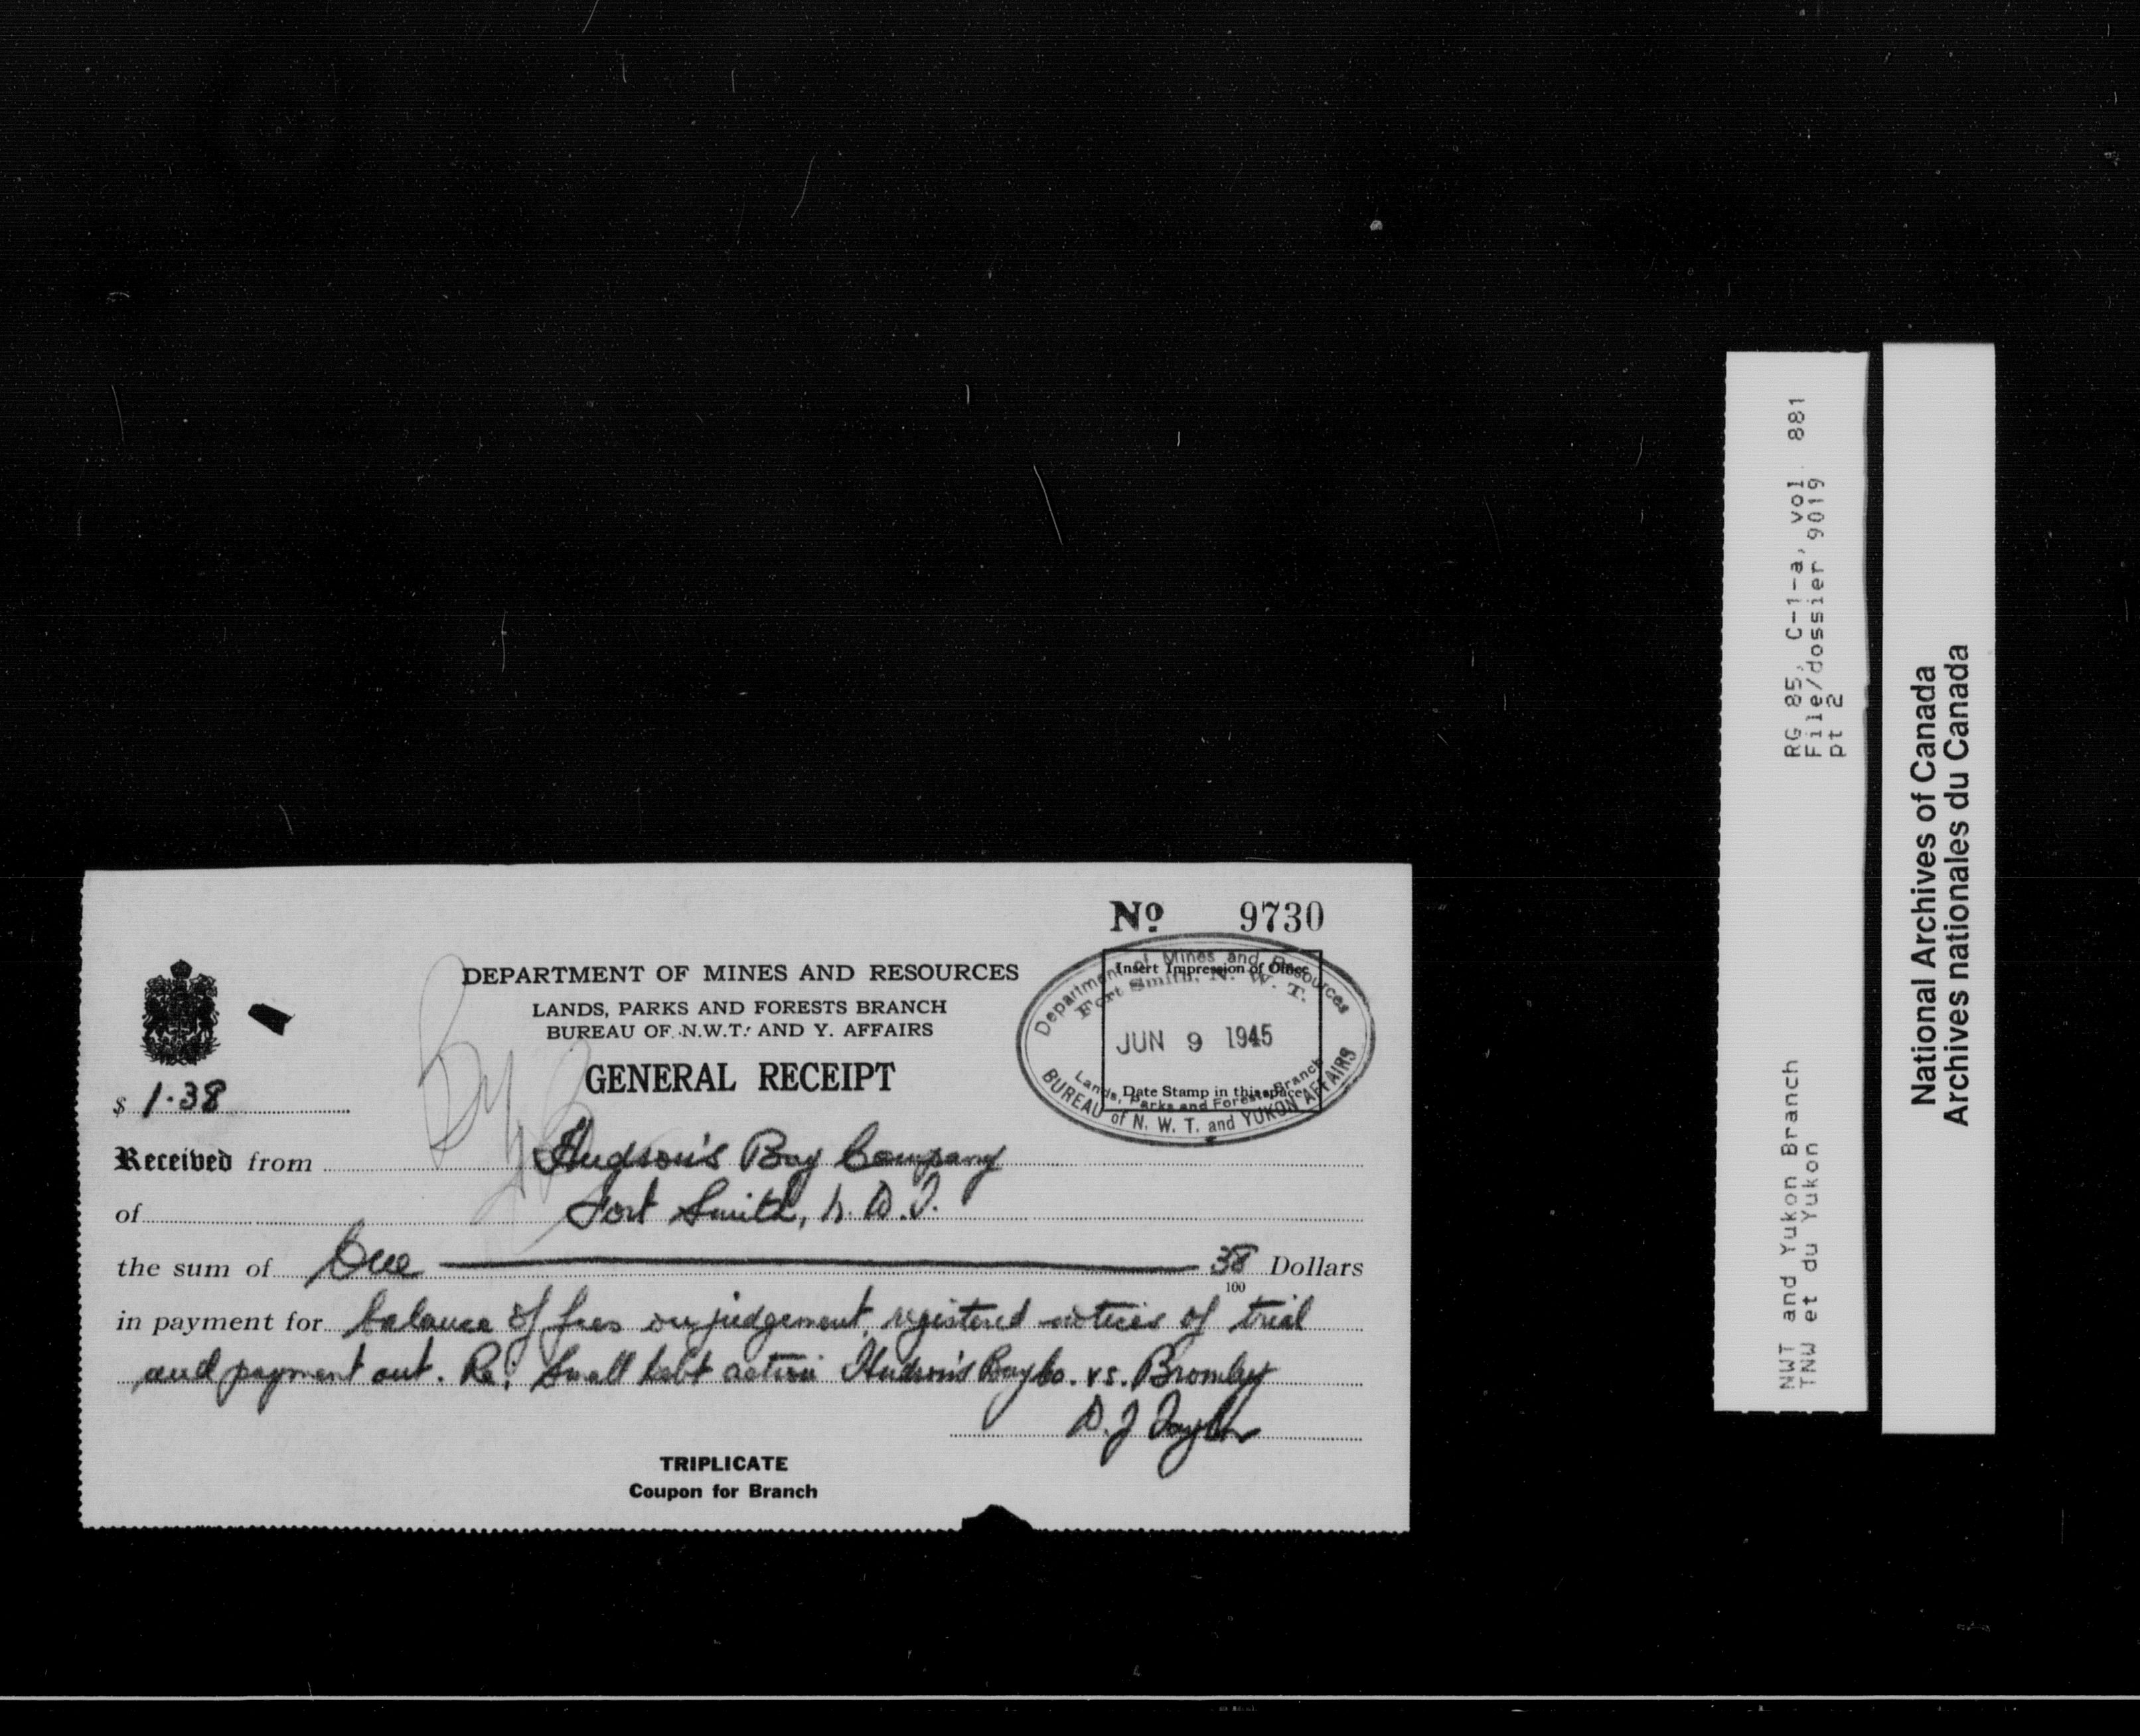 Nº 9730
DEPARTMENT OF MINES AND RESOURCES
LANDS, PARKS AND FORESTS BRANCH
BUREAU OF N.W.T. AND Y. AFFAIRS
GENERAL RECEIPT
Insert Impression of Office
Date Stamp in this space
Department of Mines and Resources
Fort Smith, N. W. T.
JUN 9 1945
Lands, Parks and Forests Branch
BUREAU of N. W. T. and YUKON AFFAIRS
$ 1.38
Received from Hudson's Bay Company
of Fort Smith, N.W.T.
the sum of One 38 Dollars
100
in payment for balance of fees on judgement, registered notices of trial
and payment out. Re: Small debt action Hudson's Bay Co. vs. Bromley
D. J Taylor
TRIPLICATE
Coupon for Branch
RG 85, C-1-a, vol. 881
File/dossier 9019
pt 2
NWT and Yukon Branch
TNW et du Yukon
National Archives of Canada
Archives nationales du Canada